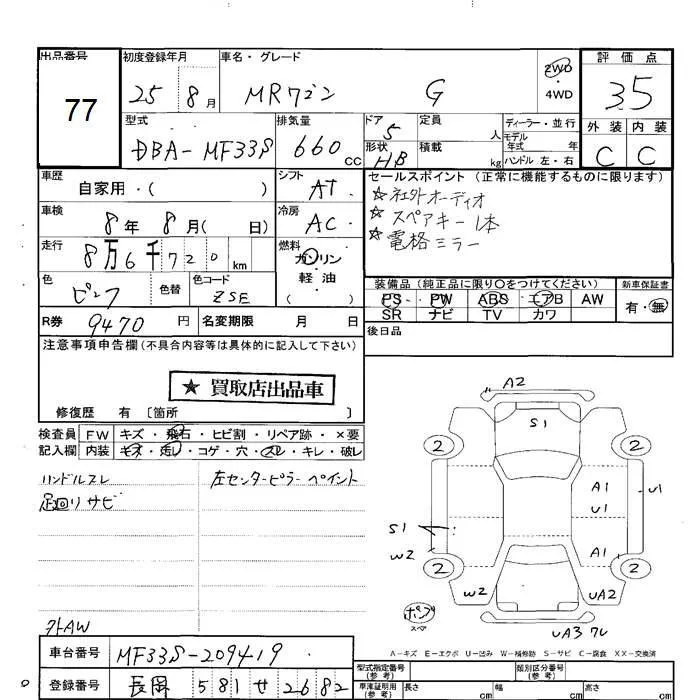 出品番号 初度登録年月 車名・グレード 2WD 評価点
77 25 8月 MRワゴン G ・4WD 3.5
型式 排気量 ドア 定員 ディーラー・並行 外装 内装
DBA-MF33S 660cc 5 人 モデル年式 年 C C
形状 積載 kg ハンドル 左・右
HB
車歴 自家用・( ) シフト AT セールスポイント (正常に機能するものに限ります)
☆社外オーディオ
車検 8年 8月( 日) 冷房 AC ☆スペアキー1本
☆電格ミラー
走行 8万6千720km 燃料 ガソリン・軽油・( )
色 ピンク 色替 色コード ZSE 装備品 (純正品に限り○をつけてください) 新車保証書
PS・PW・ABS・エアB AW 有・無
SR ナビ TV カワ
R券 9470円 名変期限 月 日 後日品
注意事項申告欄(不具合内容等は具体的に記入して下さい)
★ 買取店出品車
修復歴 有 〔箇所 〕
検査員 FW キズ・飛石・ヒビ割・リペア跡・×要
記入欄 内装 キズ・汚レ・コゲ・穴・スレ・キレ・破レ
ハンドルスレ 左センターピラーペイント
足回りサビ
外AW
A2
S1
2 2
A1 U1
U1
S1
W2 A1
2 2
W2 UA2
ポンプ
スペア
UA3 ワレ
A-キズ E-エクボ U-凹み W-補修跡 S-サビ C-腐食 XX-交換済
車台番号 MF33S-209419
型式指定番号(参考) 類別区分番号(参考)
登録番号 長岡 581 せ 2682
車庫証明用(参考) 長さ cm 幅 cm 高さ cm